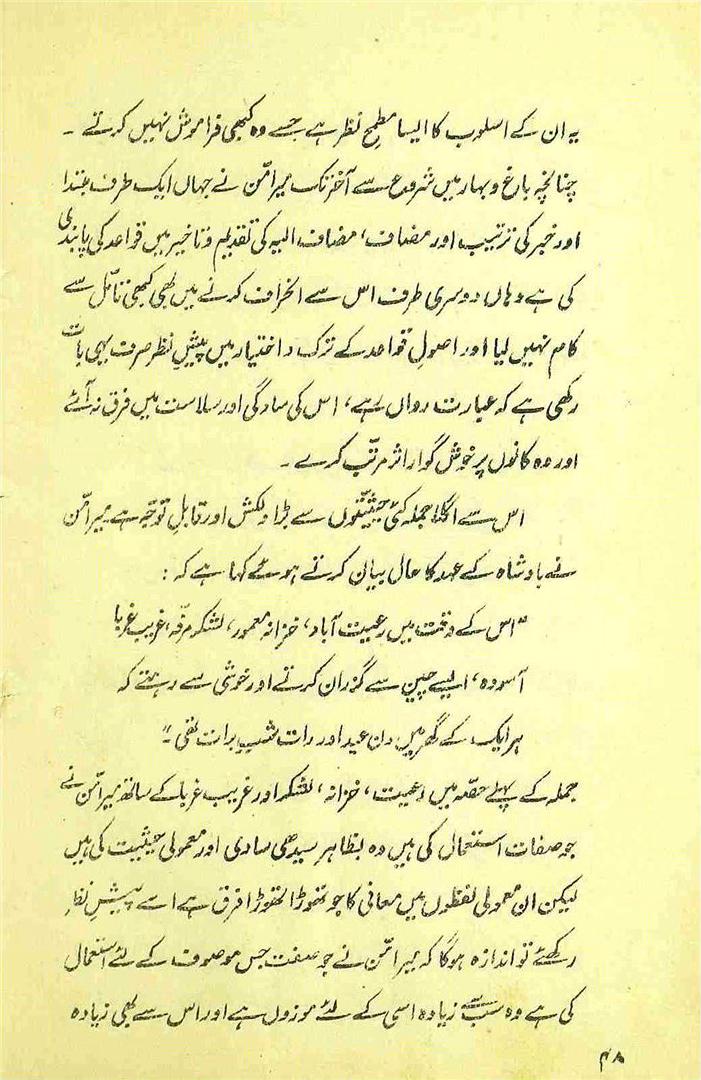 یہ ان کے اسلوب کا ایسا مطمحِ نظر ہے جسے وہ کبھی فراموش نہیں کرتے ۔
چنانچہ باغ و بہار میں شروع سے آخر تک میر امّن نے جہاں ایک طرف مبتدا
اور خبر کی ترتیب اور مضاف، مضاف الیہ کی تقدیم و تاخیر میں قواعد کی پابندی
کی ہے وہاں دوسری طرف اس سے انحراف کرنے میں بھی کبھی تامّل سے
کام نہیں لیا اور اصولِ قواعد کے ترک و اختیار میں پیشِ نظر صرف یہی بات
رکھی ہے کہ عبارت رواں رہے، اس کی سادگی اور سلاست میں فرق نہ آئے
اور وہ کانوں پر خوش گوار اثر مرتّب کرے ۔
اس سے اگلا جملہ کئی حیثیّتوں سے بڑا دلکش اور قابلِ توجّہ ہے میر امّن
نے بادشاہ کے عہد کا حال بیان کرتے ہوئے کہا ہے کہ :
"اس کے وقت میں رعیت آباد، خزانہ معمور، لشکر مرفّہ، غریب غربا
آسودہ، ایسے چین سے گزران کرتے اور خوشی سے رہتے کہ
ہر ایک کے گھر میں دن عید اور رات شبِ برات تھی ۔"
جملہ کے پہلے حصّہ میں رعیت، خزانہ، لشکر اور غریب غربا کے ساتھ میر امّن نے
جو صفات استعمال کی ہیں وہ بظاہر سیدھی سادی اور معمولی حیثیت کی ہیں
لیکن ان معمولی لفظوں میں معانی کا جو تھوڑا تھوڑا فرق ہے اسے پیشِ نظر
رکھئے تو اندازہ ہوگا کہ میر امّن نے جو صفت جس موصوف کے لئے استعمال
کی ہے وہ سب سے زیادہ اسی کے لئے موزوں ہے اور اس سے بھی زیادہ
۴۸